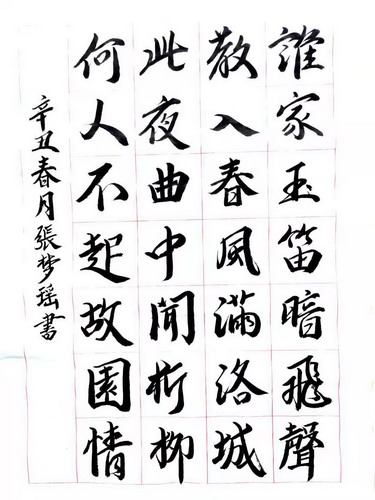 誰家玉笛暗飛聲
散入春風滿洛城
此夜曲中聞折柳
何人不起故園情
辛丑春月張梦瑶書